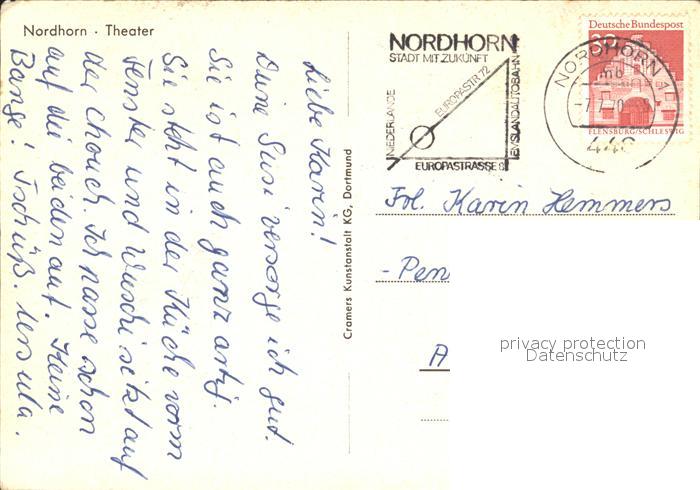 Nordhorn · Theater
Liebe Karin!
Deine Susi versorge ich gut.
Sie ist auch ganz artig.
Sie steht in der Küche vorm
Fenster und Wuschi sitzt auf
der Chouch. Ich passe schon
auf die beiden auf. Keine
Bange! Tschüß. Ursula.
Cramers Kunstanstalt KG, Dortmund
NORDHORN
STADT MIT ZUKUNFT
NIEDERLANDE
EUROPASTR 72
EMSLANDAUTOBAHN
EUROPASTRASSE 8
NORDHORN 1
mb
-7.7.70
446
Deutsche Bundespost
FLENSBURG/SCHLESWIG
Frl. Karin Hemmers
- Pen
A
privacy protection
Datenschutz